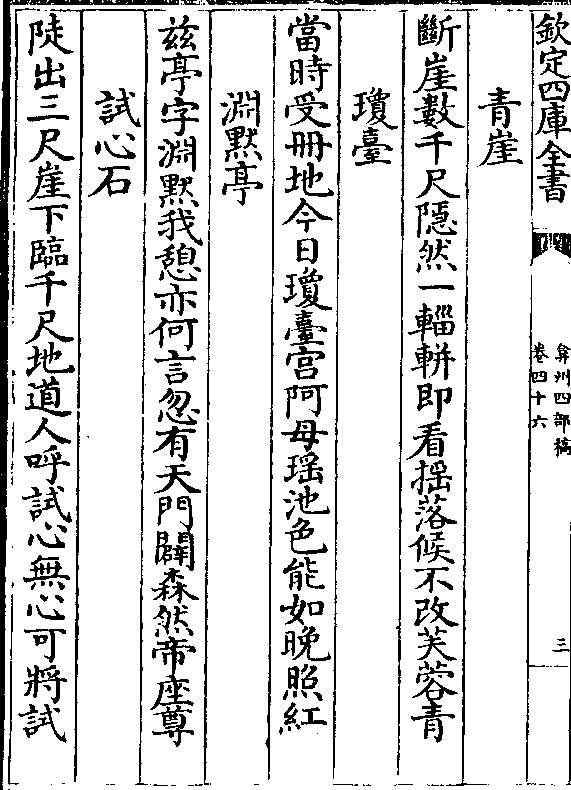 欽定四庫全書
弇州四部稿
卷四十六
三
青崖
斷崖數千尺隱然一輜軿即看揺落候不改芙蓉青
瓊臺
當時受冊地今日瓊臺宫阿母瑶池色能如晚照紅
淵黙亭
兹亭字淵黙我憩亦何言忽有天門闢森然帝座尊
試心石
陡出三尺崖下臨千尺地道人呼試心無心可將試